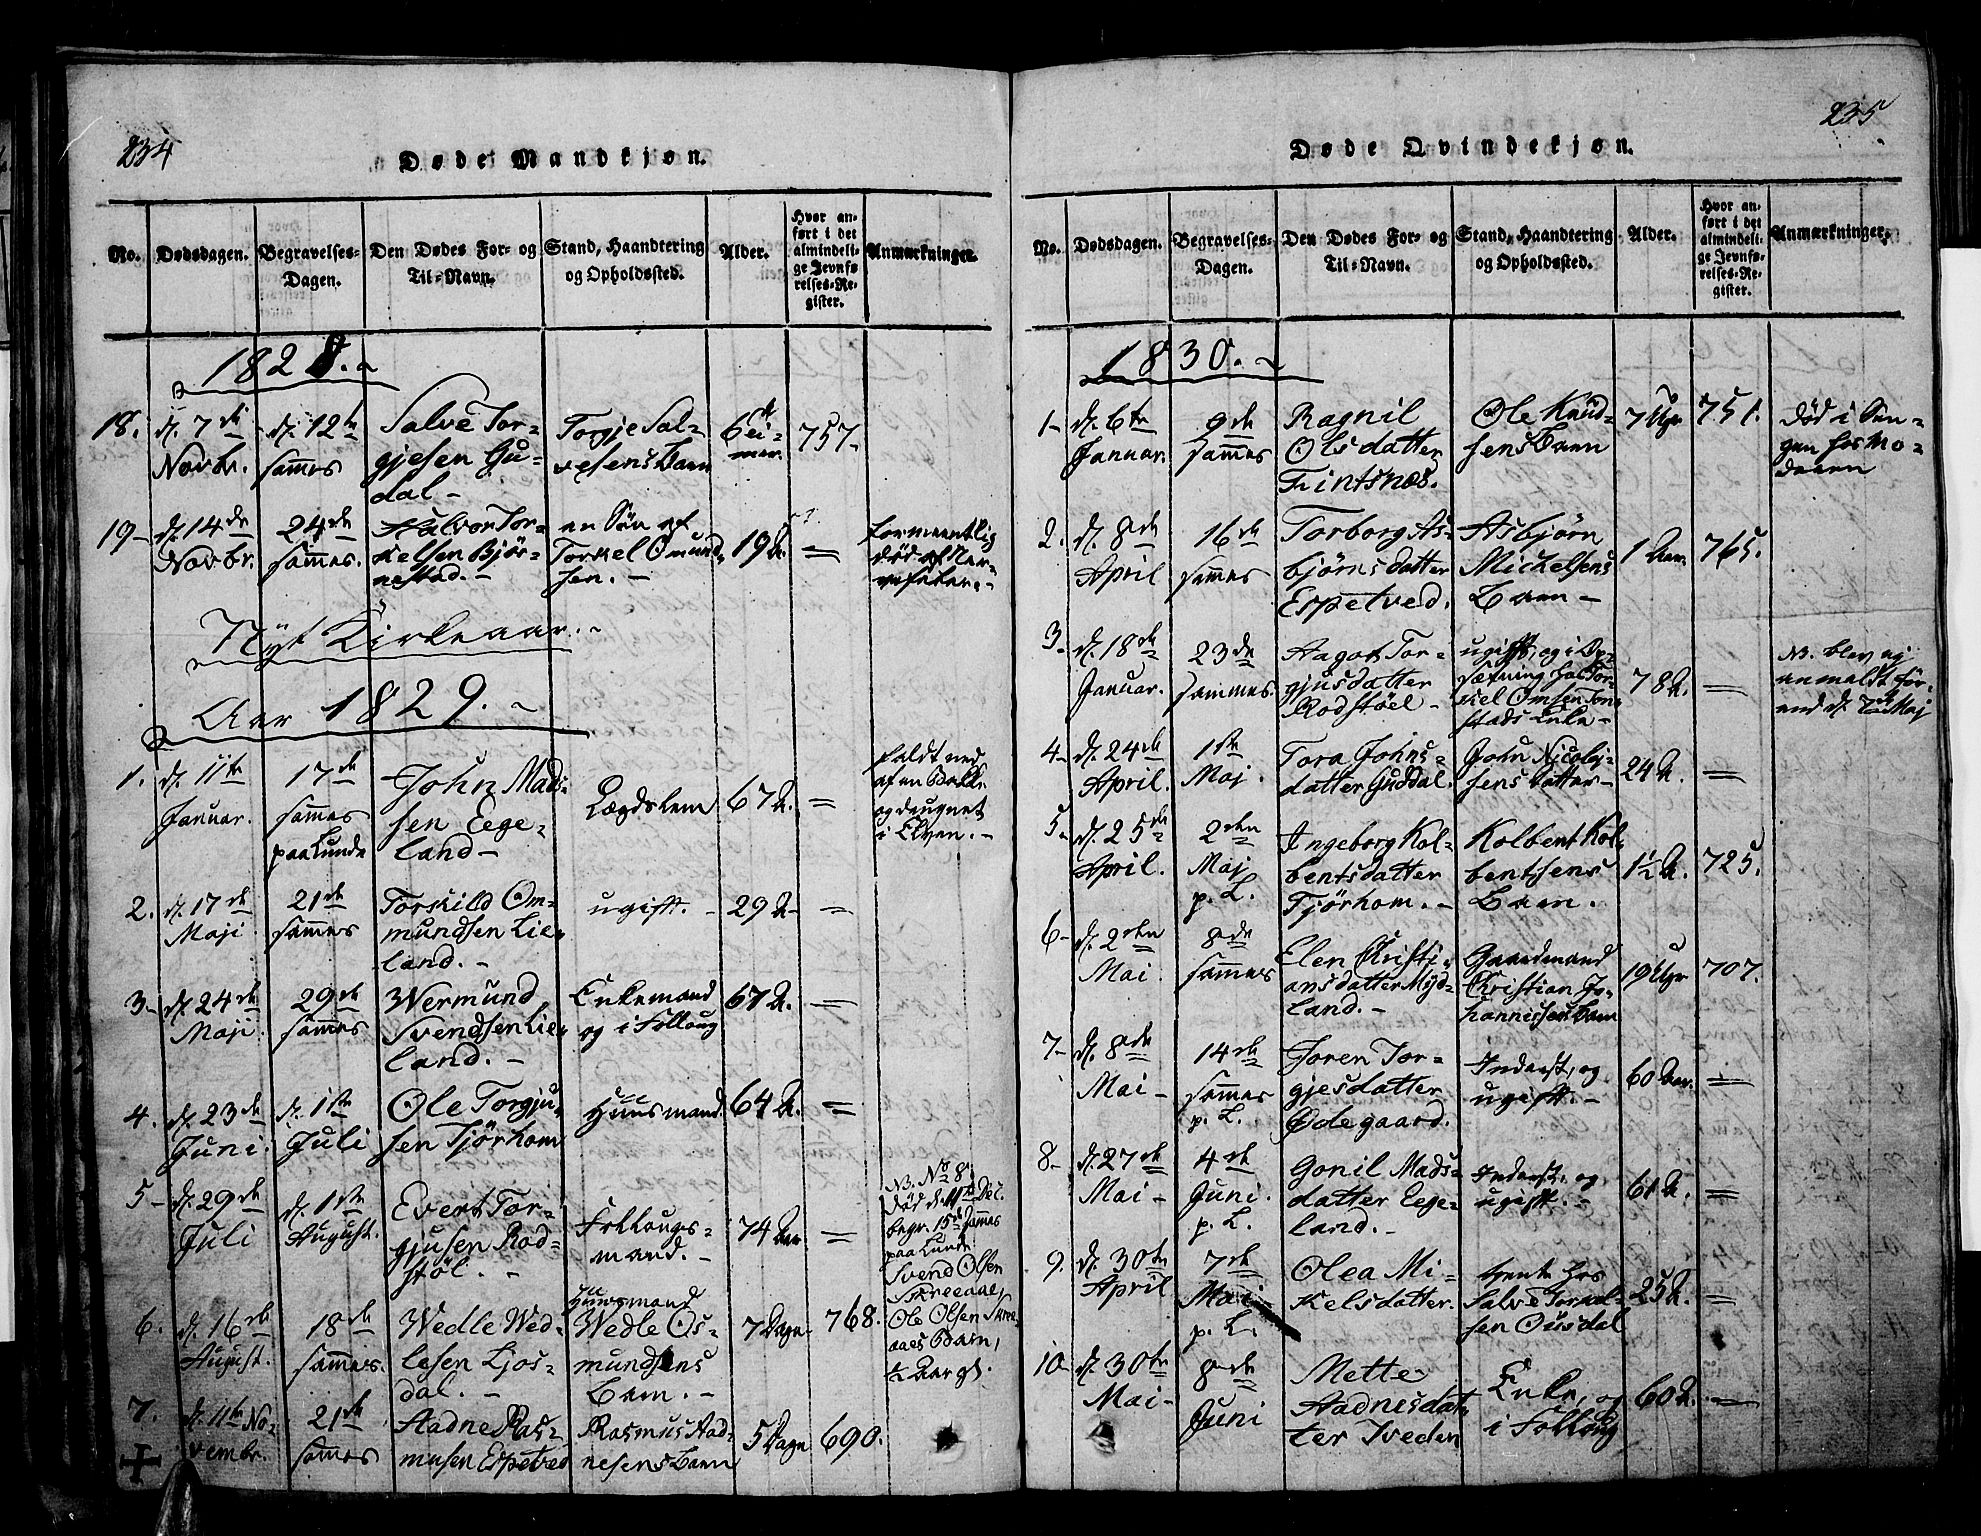 234
Døde Mandkjøn.
No.
Dødsdagen.
Begravelses-
Dagen.
Den Dødes For- og
Til-Navn.
Stand, Haandtering
og Opholdssted.
Alder.
Hvor an-
ført i det
almindeli-
ge Jevnfø-
relses-Re-
gister.
Anmærkninger.
1828.
18. d. 7de Novbr. d. 12te sammes Salve Tor-
gjesen Gu-
dal - Torgje Sal-
vesens Barn 757.
19 - d. 14de Novbr. 24de sammes. Halvor Tor-
kelsen Bjør-
nestad. - en Søn af
Torkel Omund-
sen. - 19 A. =
formeentlig
død af Ner-
vefeber. -
Nyt Kirkeaar. -
Aar 1829. -
1. d. 11te Januar. 17de sammes paa Lunde John Mad-
sen Eege-
land - Lægdslem 67 A. = faldt ned
af en Bakke
og druknet
i Elven. -
2. d. 17de Maji 21de sammes Torkild Om-
mundsen Lie-
land. - ugift. - 29 A - =
3 - d. 24de Maji. 29de sammes Wermund
Svendsen Lie-
land. - Enkemand
og i Folloug 67 A. =
4. d. 23de Juni. d. 1ste Juli Ole Torgju-
sen Tjørhom Huusmand. 64 A. =
5 - d. 29de Juli d. 1ste August. Evert Tor-
gjusen Rod-
støl. - Follougs-
mand. - 74 Aar =
6. d. 16de August. 18de sammes. Wedle Wed-
lesen Ljos-
dal. - Huusmand
Wedle Os-
mundsens
Barn. - 7 Dage 768.
NB. No 8
Død d. 11te Dec.
begr. 15de sammes
paa Lunde
Svend Olsen
Skreeaae,
Ole Olsen Skree-
aaes Barn,
½ Aar gl.
7. d. 11te No-
vembr. 21de sammes Aadne Ras-
musen Espetved Rasmus Aad-
nesens Barn 5 Dage 690.
235
Døde Qvindekjøn.
No.
Dødsdagen.
Begravelses-
Dagen.
Den Dødes For- og
Til-Navn.
Stand, Haandtering
og Opholdssted.
Alder.
Hvor an-
ført i det
almindeli-
ge Jevnfø-
relses-Re-
gister.
Anmærkninger.
1830. -
1 - d. 6te Januar. 9de sammes Ragnil
Olsdatter
Fintsnæs. Ole Knud-
sens Barn 7 Uger 751. Død i Sen-
gen hos Mo-
deren
2. d. 8de April 16de sammes Torborg As-
bjørnsdatter
Espetved. Asbjørn
Michelsens
Barn - 1 Aar. 765.
3 - d. 18de Januar. 23de sammes. Aagot Tor-
gjusdatter
Rodstøel - ugift, og i
hos Tor-
kel Omsen
stads Enke - 78 A. = NB. blev ej
anmeldt før-
end d. Maj
4 - d. 24de April. 1ste Maj. Tora Johns-
datter Guddal. John Nicolaj-
sens datter - 24 A. =
5 - d. 25de April. 2den Maj p. L. Ingeborg Kol-
bentsdatter
Tjørhom. - Kolbent Kol-
bentsens
Barn. 1½ A. 725.
6 - d. 2den Mai. 8de sammes Elen Christi-
ansdatter Myd-
land. - Gaardmand
Christian Jo-
hannissens Barn 19 Uger 707.
7 - d. 8de Mai - 14de sammes p. L. Joren Tor-
gjesdatter
Ødegaard. Inderst, og
ugift. - 60 Aar. =
8 - d. 27de Mai - 4de Juni. p. L. Gonil Mads-
datter Eege-
land. - Inderst, og
ugift. - 61 A. =
9. d. 30te April 7de Mai p. L. Olea Mi-
kelsdatter. tjente hos
Salve Torkel-
sen Ousdal 25 A. =
10 - d. 30te Mai - 8de Juni Mette
Aadnesdat-
ter Tveden Enke, og
i Folloug 60 A. =